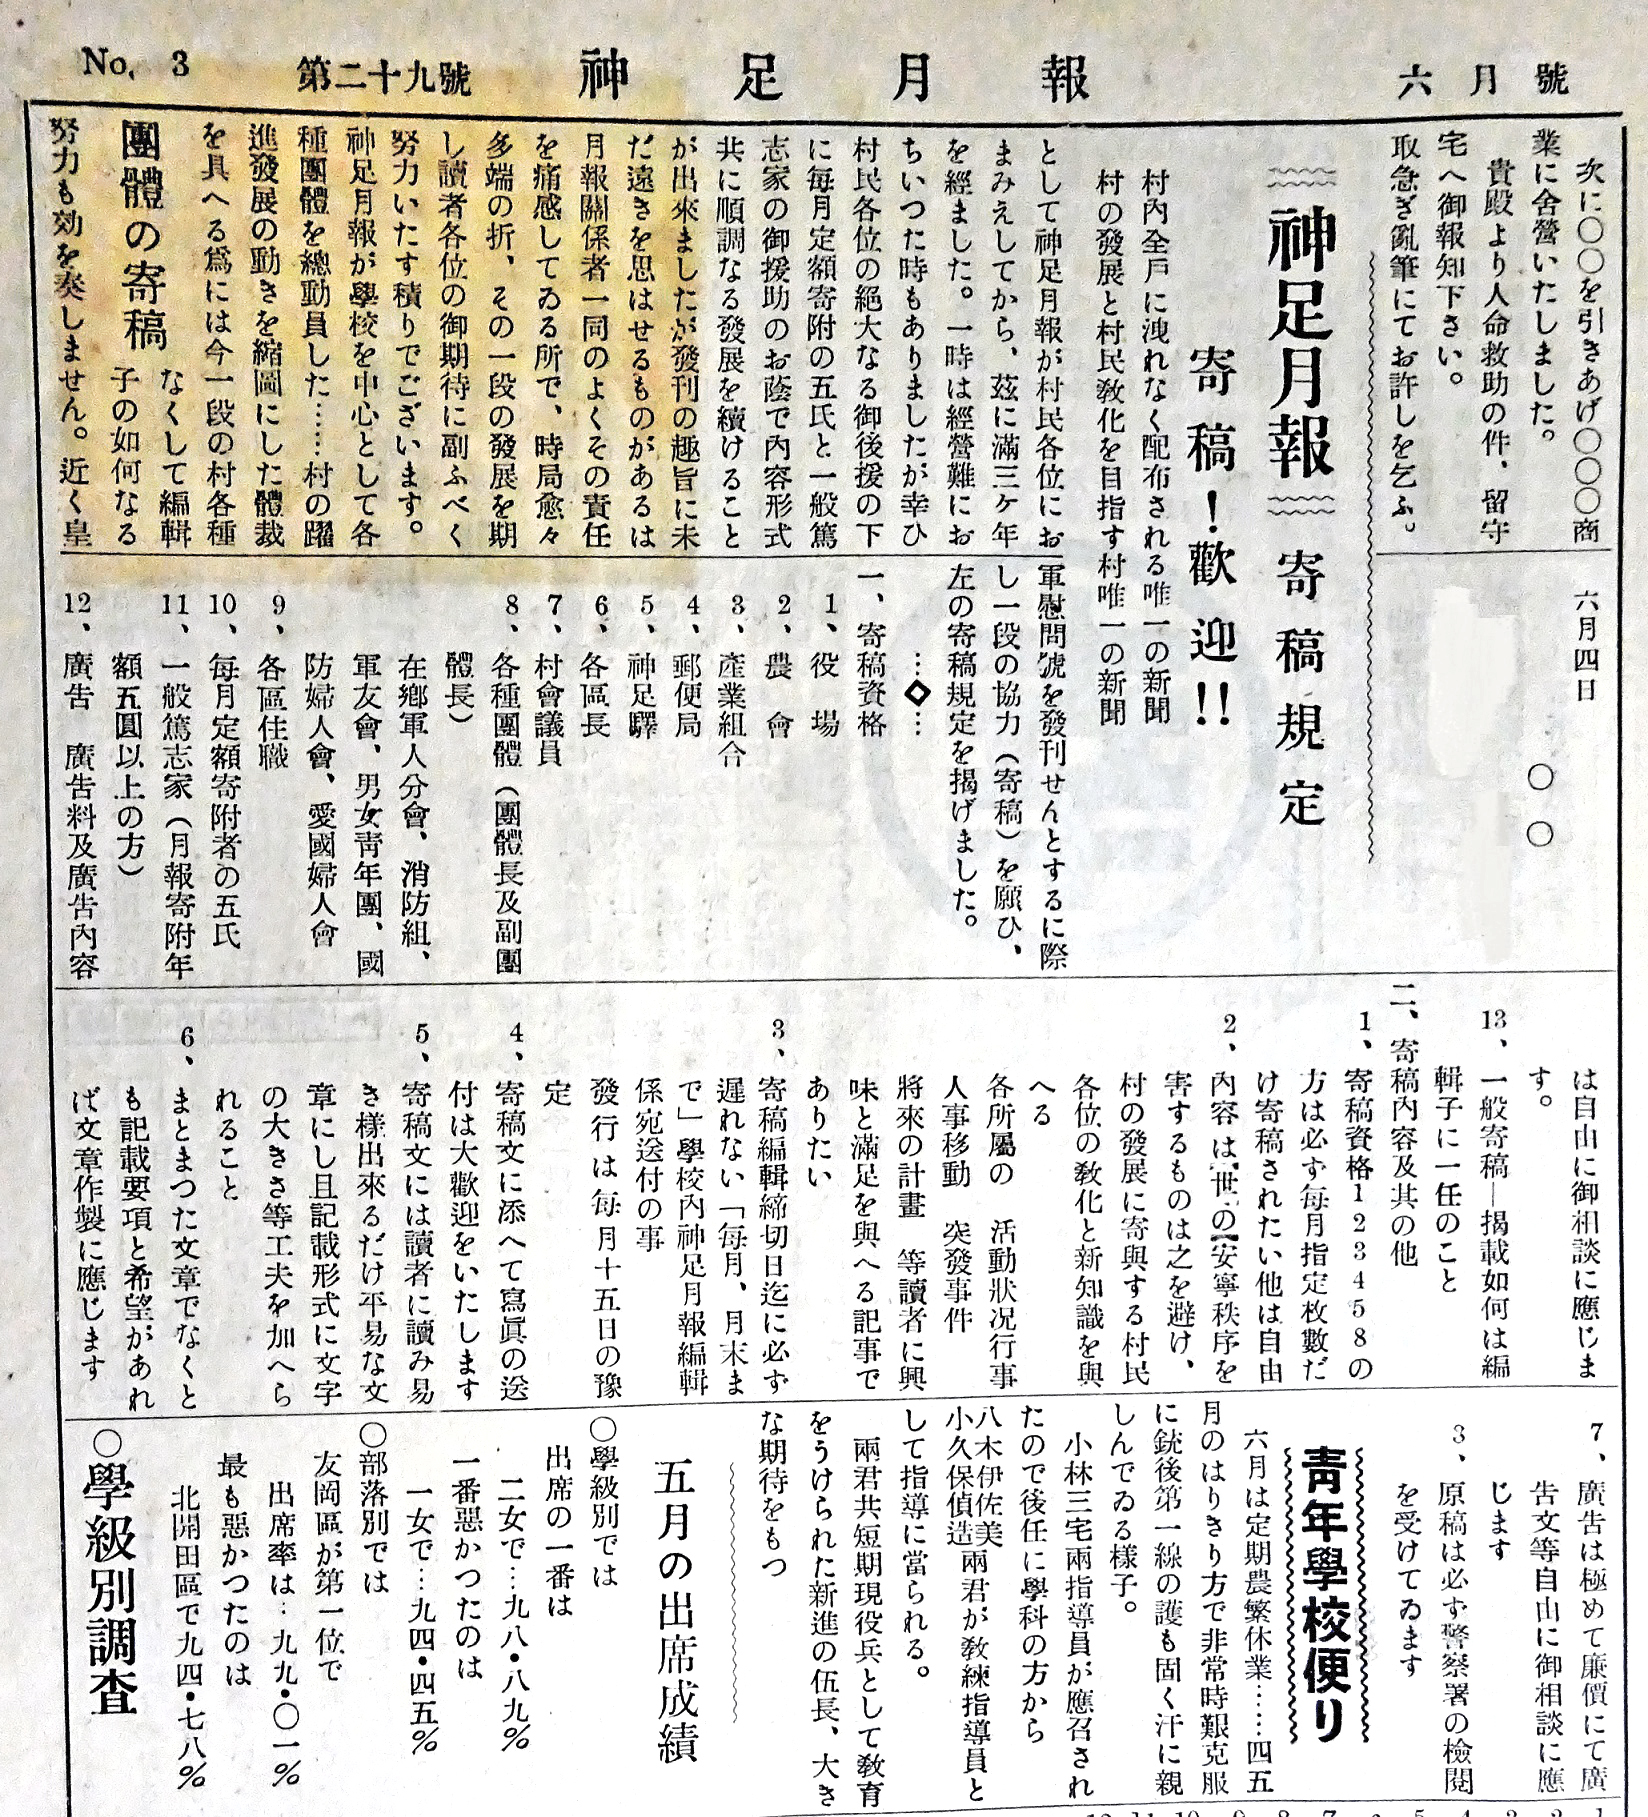 No. 3
第二十九號
神足月報
六月號
次に〇〇を引きあげ〇〇〇商
業に舍營いたしました。
貴殿より人命救助の件、留守
宅へ御報知下さい。
取急ぎ亂筆にてお許しを乞ふ。
六月四日
〇〇
神足月報 寄稿規定
寄稿!歡迎!!
村內全戶に洩れなく配布される唯一の新聞
村の發展と村民敎化を目指す村唯一の新聞
として神足月報が村民各位にお
まみえしてから、茲に滿三ケ年
を經ました。一時は經營難にお
ちいつた時もありましたが幸ひ
村民各位の絕大なる御後援の下
に每月定額寄附の五氏と一般篤
志家の御援助のお蔭で內容形式
共に順調なる發展を續けること
が出來ましたが發刊の趣旨に未
だ遠きを思はせるものがあるは
月報關係者一同のよくその責任
を痛感してゐる所で、時局愈々
多端の折、その一段の發展を期
し讀者各位の御期待に副ふべく
努力いたす積りでございます。
神足月報が學校を中心として各
種團體を總動員した……村の躍
進發展の動きを縮圖にした體裁
を具へる爲には今一段の村各種
團體の寄稿
なくして編輯
子の如何なる
努力も効を奏しません。近く皇
軍慰問號を發刊せんとするに際
し一段の協力(寄稿)を願ひ、
左の寄稿規定を揭げました。
…◇…
一、寄稿資格
1、役場
2、農會
3、產業組合
4、郵便局
5、神足驛
6、各區長
7、村會議員
8、各種團體(團體長及副團
體長)
在鄕軍人分會、消防組、
軍友會、男女靑年團、國
防婦人會、愛國婦人會
9、各區住職
10、每月定額寄附者の五氏
11、一般篤志家(月報寄附年
額五圓以上の方)
12、廣告 廣告料及廣告內容
は自由に御相談に應じま
す。
13、一般寄稿―揭載如何は編
輯子に一任のこと
二、寄稿內容及其の他
1、寄稿資格123458の
方は必ず每月指定枚數だ
け寄稿されたい他は自由
2、內容は【世の】安寧秩序を
害するものは之を避け、
村の發展に寄與する村民
各位の敎化と新知識を與
へる
各所屬の 活動狀況行事
人事移動 突發事件
將來の計畫 等讀者に興
味と滿足を與へる記事で
ありたい
3、寄稿編輯締切日迄に必ず
遲れない「每月、月末ま
で」學校內神足月報編輯
係宛送付の事
發行は每月十五日の豫
定
4、寄稿文に添へて寫眞の送
付は大歡迎をいたします
5、寄稿文には讀者に讀み易
き樣出來るだけ平易な文
章にし且記載形式に文字
の大きさ等工夫を加へら
れること
6、まとまつた文章でなくと
も記載要項と希望があれ
ば文章作製に應じます
7、廣告は極めて廉價にて廣
告文等自由に御相談に應
じます
3、原稿は必ず警察署の檢閱
を受けてゐます
靑年學校便り
六月は定期農繁休業……四五
月のはりきり方で非常時艱克服
に銃後第一線の護も固く汗に親
しんでゐる樣子。
小林三宅兩指導員が應召され
たので後任に學科の方から
八木伊佐美
小久保偵造
兩君が敎練指導員と
して指導に當られる。
兩君共短期現役兵として敎育
をうけられた新進の伍長、大き
な期待をもつ
五月の出席成績
〇學級別では
出席の一番は
二女で…九八・八九%
一番惡かつたのは
一女で…九四・四五%
〇部落別では
友岡區が第一位で
出席率は…九九・〇一%
最も惡かつたのは
北開田區で九四・七八%
〇學級別調査